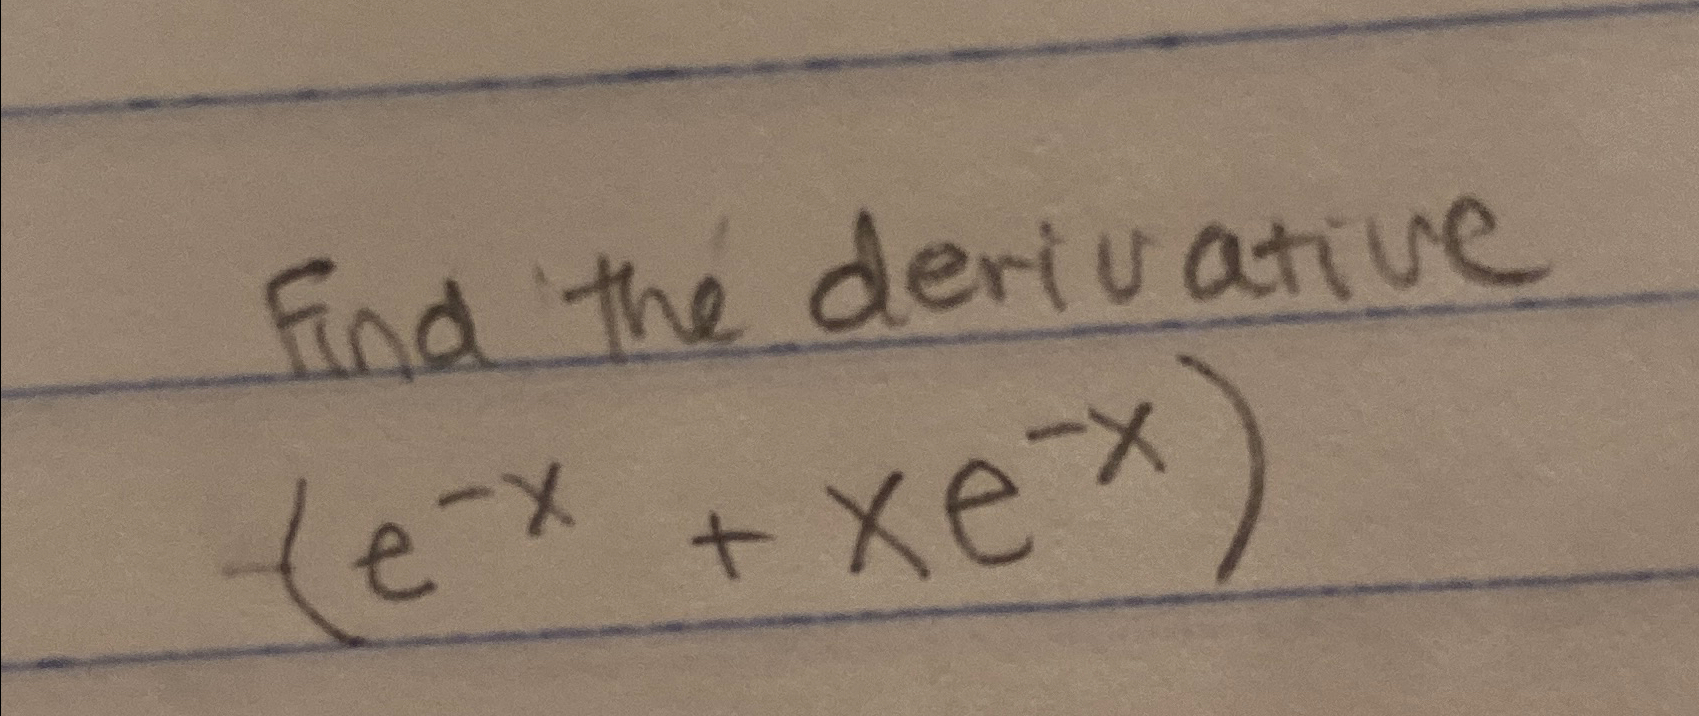 Find the derivative
-(e^{-x} + xe^{-x})